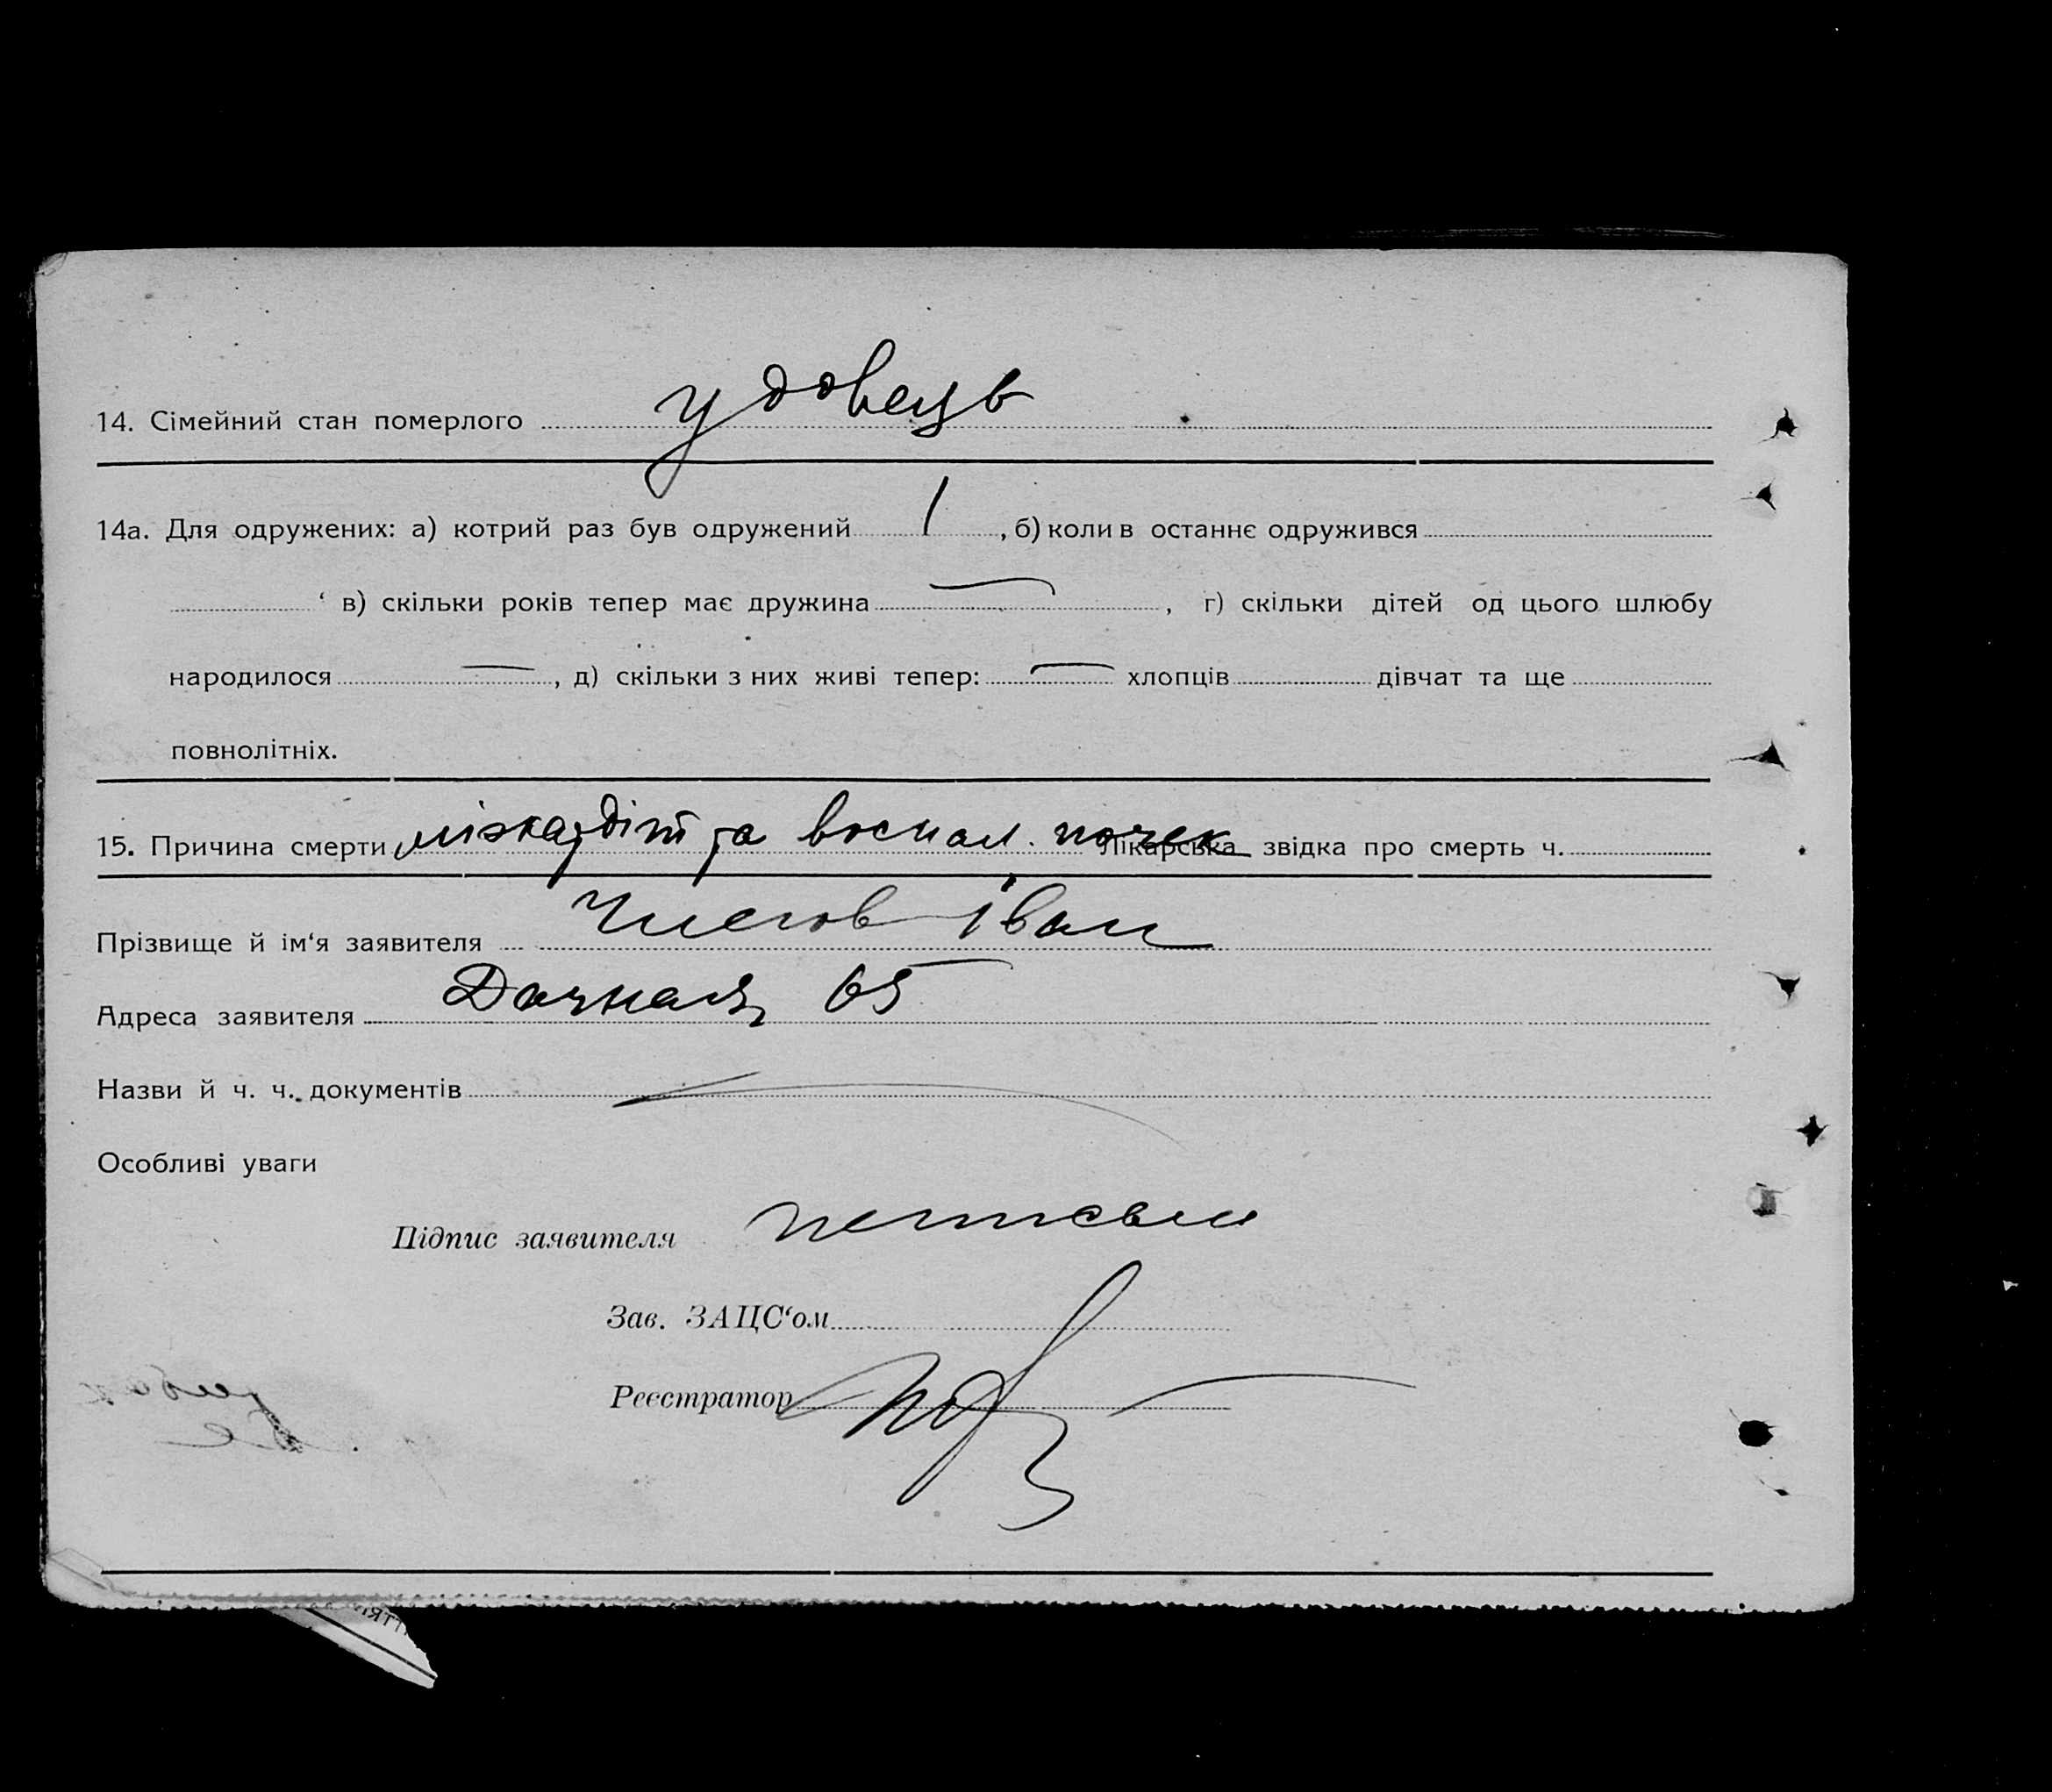 14. Сімейний стан померлого удовець
14а. Для одружених: а) котрий раз був одружений 1, б) коли в останнє одружився
‘ в) скільки років тепер має дружина —, г) скільки дітей од цього шлюбу
народилося —, д) скільки з них живі тепер: — хлопців дівчат та ще
повнолітніх.
15. Причина смерти міэкардіт та воспал. почек Лікарська звідка про смерть ч.
Прізвище й ім‘я заявителя Іван
Адреса заявителя Дачная 65
Назви й ч. ч. документів —
Особливі уваги
Підпис заявителя
Зав. ЗАЦС‘ом
Реєстратор